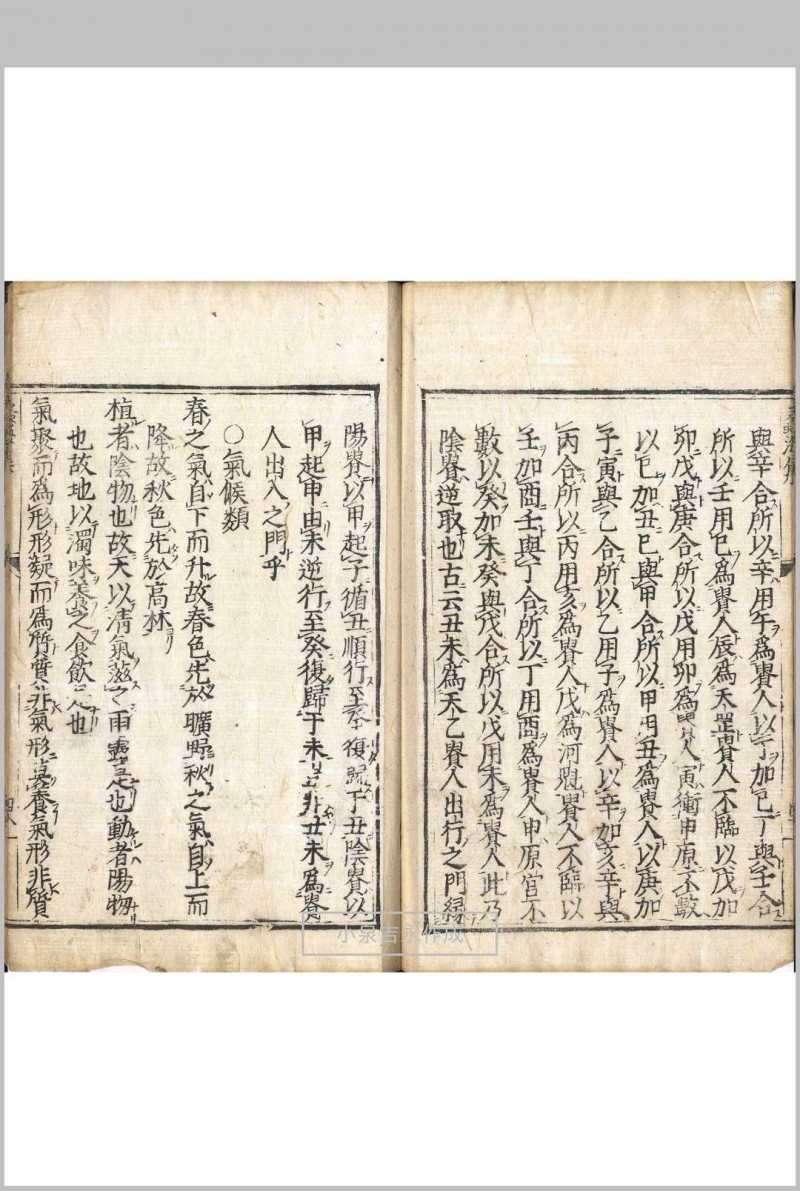 與辛合所以辛用午爲貴人以丁加巳丁與壬合
所以壬用巳爲貴人辰爲天罡貴人不臨以戊加
卯戊與庚合所以戊用卯爲貴人寅衝申原不數
以巳加丑巳與甲合所以甲用丑爲貴人以庚加
子寅與乙合所以乙用子爲貴人以辛加亥辛與
丙合所以丙用亥爲貴人戊爲河魁貴人不臨以
壬加酉壬與丁合所以丁用酉爲貴人申原官不
數以癸加未癸與戊合所以戊用未爲貴人此乃
陰貴逆取也古云丑未爲天乙貴人出行之門緣
陽貴以甲起子循丑順行至 復歸于丑陰貴以
甲起申由未逆行至癸復歸于未豈非丑未爲貴
人出入之門乎
○氣候類
春之氣自下而升故春色先於曠野秋之氣自上而
降故秋色先於高林
植者陰物也故天以清氣滋之雨露是也動者陽物
也故地以濁味養之食飲是也
氣聚而爲形形凝而爲質質非氣形 養氣形非質
小泉吉永作成